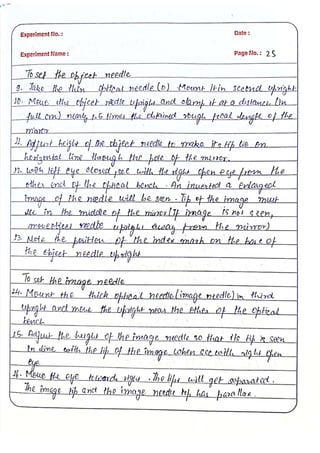 Experiment No. :
Date :
Experiment Name :
Page No. : 25
To set the object needle
9. Take the thin optical needle (o) Mount it in second upright
10. Move the object needle upright and clamp it at a distance (in
full cm) nearly 1.5 times the obtained rough focal length of the
mirror
11. Adjust height of the object needle to make its tip lie on
horizontal line through the pole of the mirror.
12. with left eye closed see with the right open eye from the
other end of the optical bench. An inverted & enlarged
image of the needle will be seen. Tip of the image must
lie in the middle of the mirror (If image is not seen,
move object needle upright away from the mirror)
13. Note the position of the index mark on the base of
the object needle upright
To set the image needle
14. Mount the thick optical needle (image needle) in third
upright and move the upright near the other of the optical
bench
15. Adjust the height of the image needle so that its tip is seen
in line with the tip of the image when see with right open
eye
16. Move the eye towards right. The tips will get separated.
The image tip and the image needle tip has parallax.